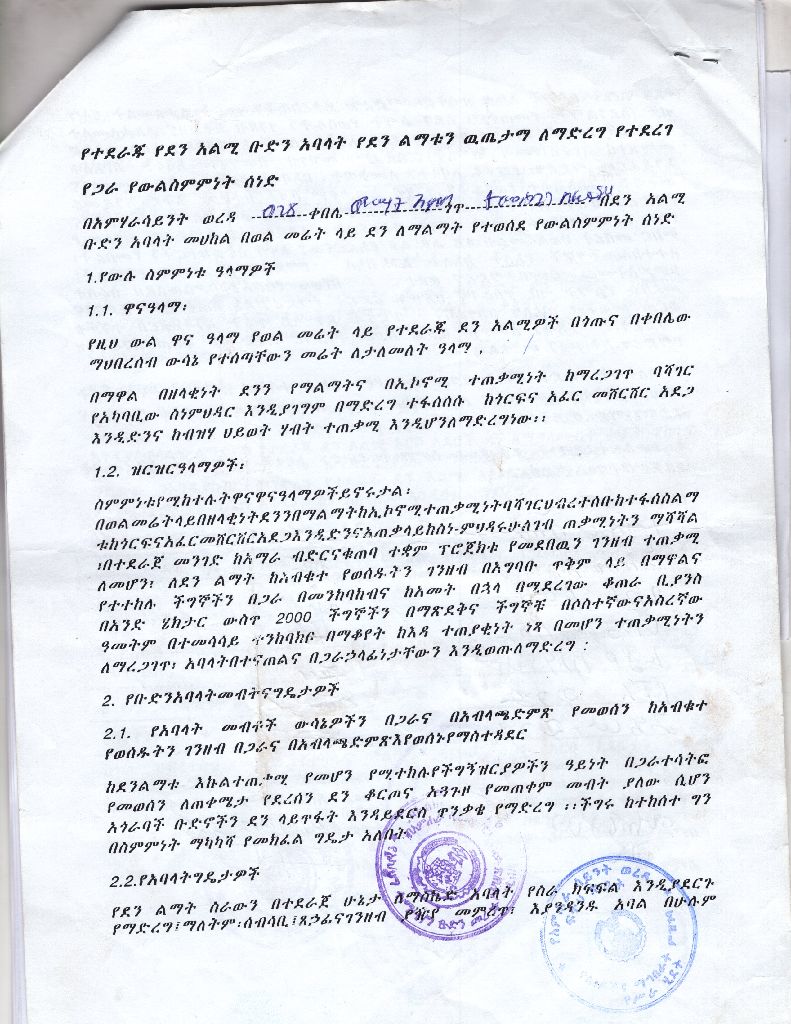 የተደራጁ የደን አልሚ ቡድን አባላት የደን ልማቱን ዉጤታማ ለማድረግ የተደረገ
የጋራ የውልስምምነት ሰነድ
በአምሃራሳይንት ወረዳ 028 ቀበሌ ጎጥ በደን አልሚ
ቡድን አባላት መሀከል በወል መሬት ላይ ደን ለማልማት የተወሰደ የውልስምምነት ሰነድ
1.የውሉ ስምምነቱ ዓላማዎች
1.1. ዋናዓላማ፡
የዚህ ውል ዋና ዓላማ የወል መሬት ላይ የተደራጁ ደን አልሚዎች በጎጡና በቀበሌው
ማህበረሰብ ውሳኔ የተሰጣቸውን መሬት ለታለመለት ዓላማ ,
በማዋል በዘላቂነት ደንን የማልማትና በኢኮኖሚ ተጠቃሚነት ከማረጋገጥ ባሻገር
የአካባቢው ስነምህዳር እንዲያገግም በማድረግ ተፋሰሰሱ ከጎርፍና አፈር መሸርሸር አደጋ
እንዲድንና ከብዝሃ ህይወት ሃብት ተጠቃሚ እንዲሆንለማድረግነው፡፡
1.2. ዝርዝርዓላማዎች፡
ስምምነቱየሚከተሉትዋናዋናዓላማዎችይኖሩታል፡
በወልመሬትላይበዘላቂነትደንንበማልማትከኢኮኖሚተጠቃሚነትባሻገርህብረተሰቡከተፋሰስልማ
ቱከጎርፍናአፈርመሸርሸርአደጋእንዲድንናአጠቃላይከስነ-ምህዳሩሁለገብ ጠቃሚነትን ማሻሻል
፣በተደራጀ መንገድ ከአማራ ብድርናቁጠባ ተቋም ፕሮጀክቱ የመደበዉን ገንዘብ ተጠቃሚ
ለመሆን፣ ለደን ልማት ከአብቁተ የወሰዱትን ገንዘብ በአግባቡ ጥቅም ላይ በማዋልና
የተተከሉ ችግኞችን በጋራ በመንከባከብና ከአመት በኋላ በማደረገው ቆጠራ ቢያንስ
በአንድ ሄክታር ውስጥ 2000 ችግኞችን በማጽደቅና ችግኞቹ በሶስተኛውናአስረኛው
ዓመትም በተመሳሳይ ተንከባክቡ በማቆየት ከእዳ ተጠያቂነት ነጻ በመሆን ተጠቃሚነትን
ለማረጋገጥ፣ አባላትበተናጠልና በጋራኃላፊነታቸውን እንዲወጡለማድረግ፡
2. የቡድንአባላትመብትናግዴታዎች
2.1. የአባላት መብቶች ውሳኔዎችን በጋራና በአብላጫድምጽ የመወሰን ከአብቁተ
የወሰዱትን ገንዘብ በጋራና በአብላጫድምጽእየወሰኑየማስተዳደር
ከደንልማቱ እኩልተጠቃሚ የመሆን የሚተከሉየችግኝዝርያዎችን ዓይነት በጋራተሳትፎ
የመወሰን ለጠቀሜታ የደረሰን ደን ቆርጦና አጓጉዞ የመጠቀም መብት ያለው ሲሆን
አጎራባች ቡድኖችን ደን ላይጥፋት እንዳይደርስ ጥንቃቄ የማድረግ ፡፡ችግሩ ከተከሰተ ግን
በስምምነት ማካካሻ የመክፈል ግዴታ አለበት
2.2.የአባላትግዴታዎች
የደን ልማት ስራውን በተደራጀ ሁኔታ ለማስኬድ አባላት የስራ ክፍፍል እንዲያደርጉ
የማድረግ፤ማለትም፡ሰብሳቢ፤ጸኃፊናገንዘብ ያዥያ መምረጥ፣ እያንዳንዱ አባል በሁሉም